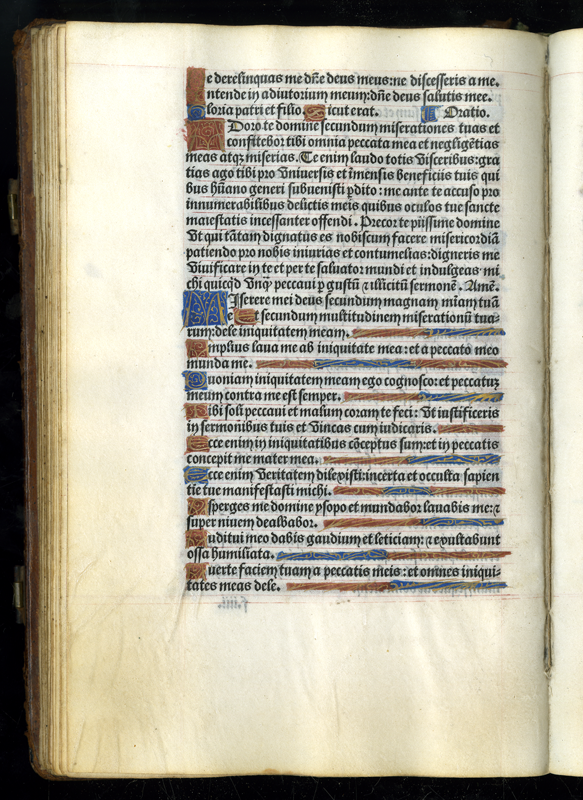 Ne derelinquas me dñe deus meus: ne discesseris a me.
Intende in adiutorium meum: dñe deus salutis mee.
Gloria patri et filio. Sicut erat. Oratio.
ADoro te domine secundum miserationes tuas et
confitebor tibi omnia peccata mea et negligētias
meas atqꝫ miserias. Te enim laudo totis visceribus: gra
tias ago tibi pro vniuersis et īmensis beneficiis tuis qui
bus hūano generi subuenisti ꝑdito: me ante te accuso pro
innumerabilibus delictis meis quibus oculos tue sancte
maiestatis incessanter offendi. Precor te piissime domine
vt qui tātam dignatus es nobiscum facere misericordiā
patiendo pro nobis iniurias et contumelias: digneris me
viuificare in te et per te saluator mundi et indulgeas mi
chi quicq̄d vnq̄ peccaui ꝑ gustū ⁊ illicitū sermonē. Amē.
MIserere mei deus secundum magnam mīam tuā
Et secundum multitudinem miserationū tua-
rum: dele iniquitatem meam.
Amplius laua me ab iniquitate mea: et a peccato meo
munda me.
Quoniam iniquitatem meam ego cognosco: et peccatuꝫ
meum contra me est semper.
Tibi soli peccaui et malum coram te feci: vt iustificeris
in sermonibus tuis et vincas cum iudicaris.
Ecce enim in iniquitatibus cōceptus sum: et in peccatis
concepit me mater mea.
Ecce enim veritatem dilexisti: incerta et occulta sapien
tie tue manifestasti michi.
Asperges me domine ysopo et mundabor lauabis me: ⁊
super niuem dealbabor.
Auditui meo dabis gaudium et leticiam: ⁊ exultabunt
ossa humiliata.
Auerte faciem tuam a peccatis meis: et omnes iniqui-
tates meas dele.